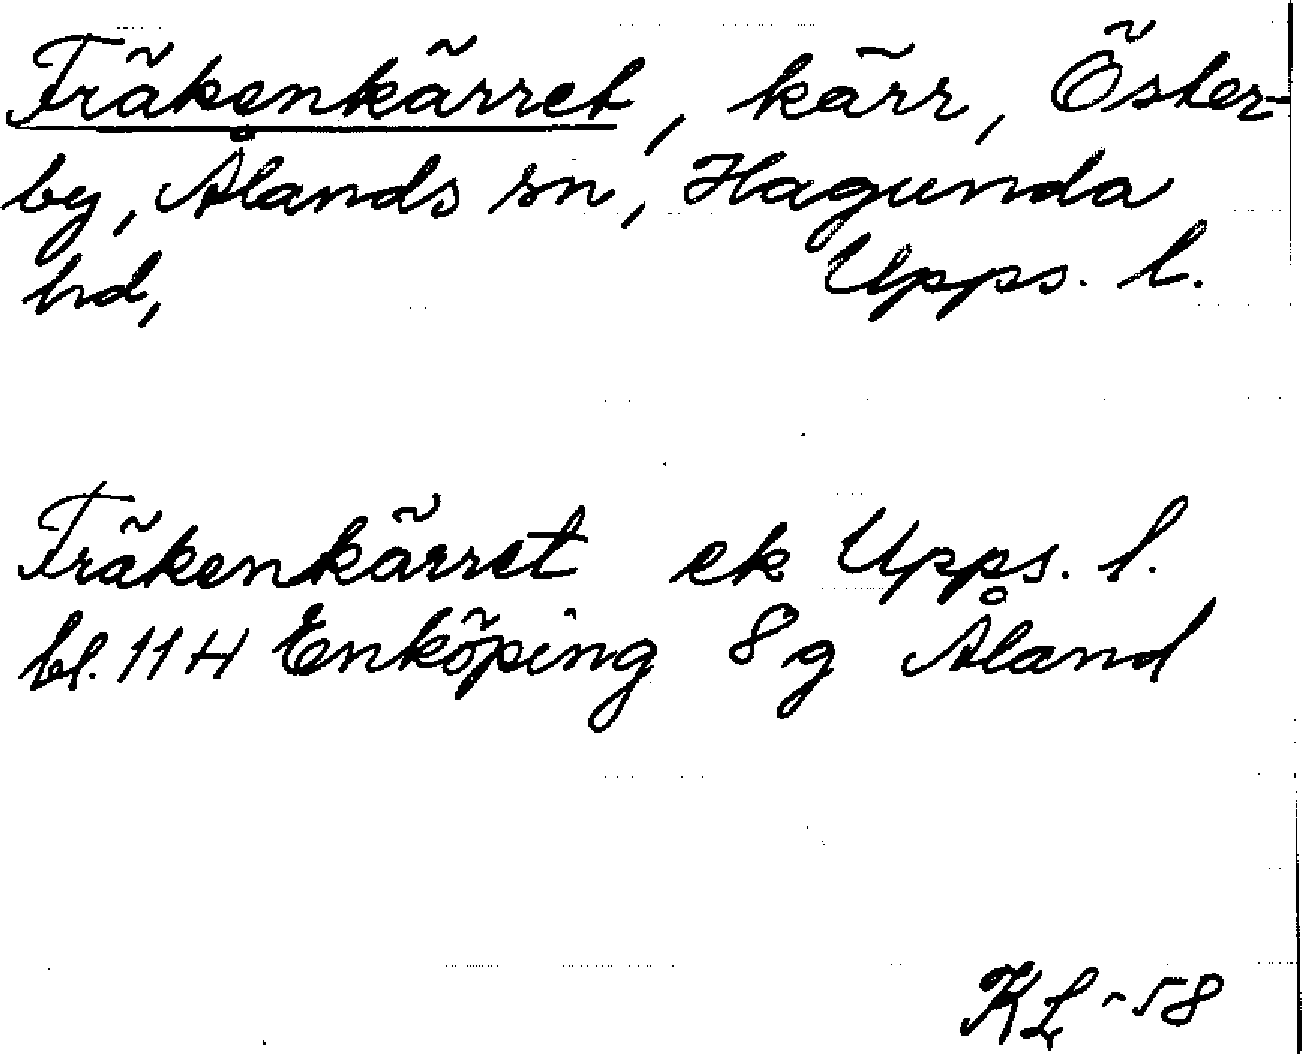 Fräkenkärret, kärr, Öster-
by, Ålands sn, Hagunda
hd, Upps. l.
Fräkenkärret ek Upps. l.
bl. 11 H Enköping 8 g Åland
KL -58